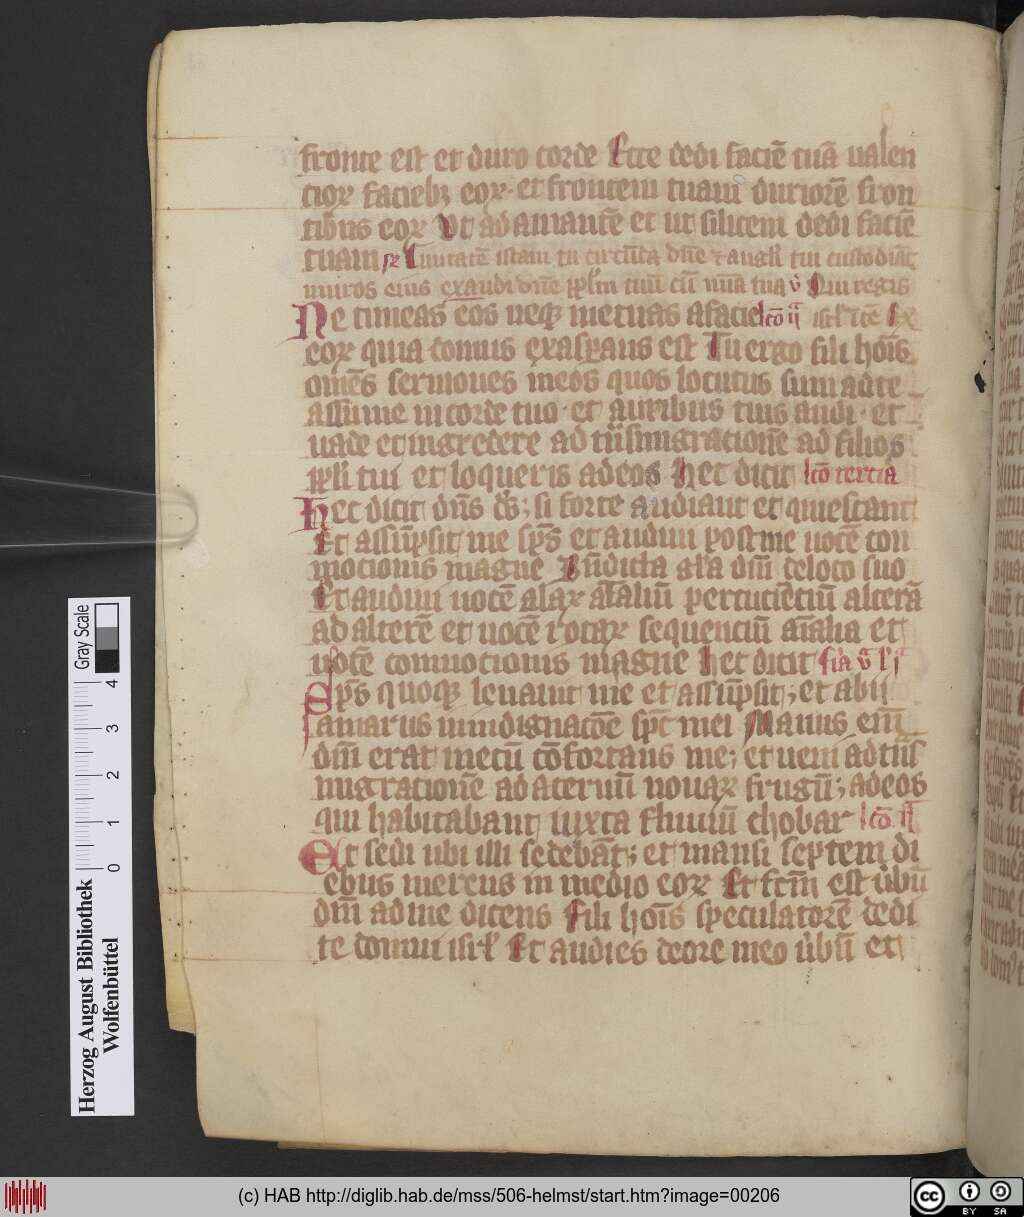 fronte est et duro corde Ecce dedi faciē tuā ualen
cioꝝ facieb; eoꝝ · et frontem tuam duriorē fron
tibus eoꝝ Vt adamantē et ut silicem dedi faciē
tuam Ciuitatē istam tu circūda dn̄e ⁊ angli tui custodiāt
muros eius exaudi dn̄e pplm tuū cū mīa tua v̊ Qui regis
Ne timeas eos neqꝫ metuas afacie lcō ij
eoꝝ quia domus exasꝑans est Tu ergo fili hoīs
omēs sermones meos quos locutus sum ad te
assume incorde tuo · et auribus tuis audi · et
uade et ingredere ad tn̄smigrationē ad filios
ppli tui et loqueris adeos hec dicit lcō tertia
Hec dicit dn̄s ds̄; si forte audiant et quiescant
Et assūpsit me sp̄s et audiui post me uocē con
motionis magne Bn̄dicta gl̄a dn̄i deloco suo
Et audiui uocē alaꝝ aīaliū percuciēciū alterā
ad alterē et uocē rotaꝝ sequenciū aīalia et
uocē conmocionis magne hec dicit fīa v̊ lᵃ jᵃ
Sp̄s quoqꝫ leuauit me et assūpsit; et abij
amarus inindignacōe spc̄ mei Manus em̄
dn̄i erat mecū cōfortans me; et ueni ad tn̄s
migrationē ad aceruū nouaꝝ frugū; adeos
qui habitabant iuxta fluuiū chobar lcō ijᵃ
Et sedi ubi illi sedebāt; et mansi septem di
ebus merens in medio eoꝝ Et fcm̄ est ūbū
dn̄i ad me dicens Fili hoīs speculatorē dedi
te domui isrł Et audies deore meo ūbū et
Herzog August Bibliothek
Wolfenbüttel
Gray Scale
0 1 2 3 4
(c) HAB http://diglib.hab.de/mss/506-helmst/start.htm?image=00206
cc BY SA